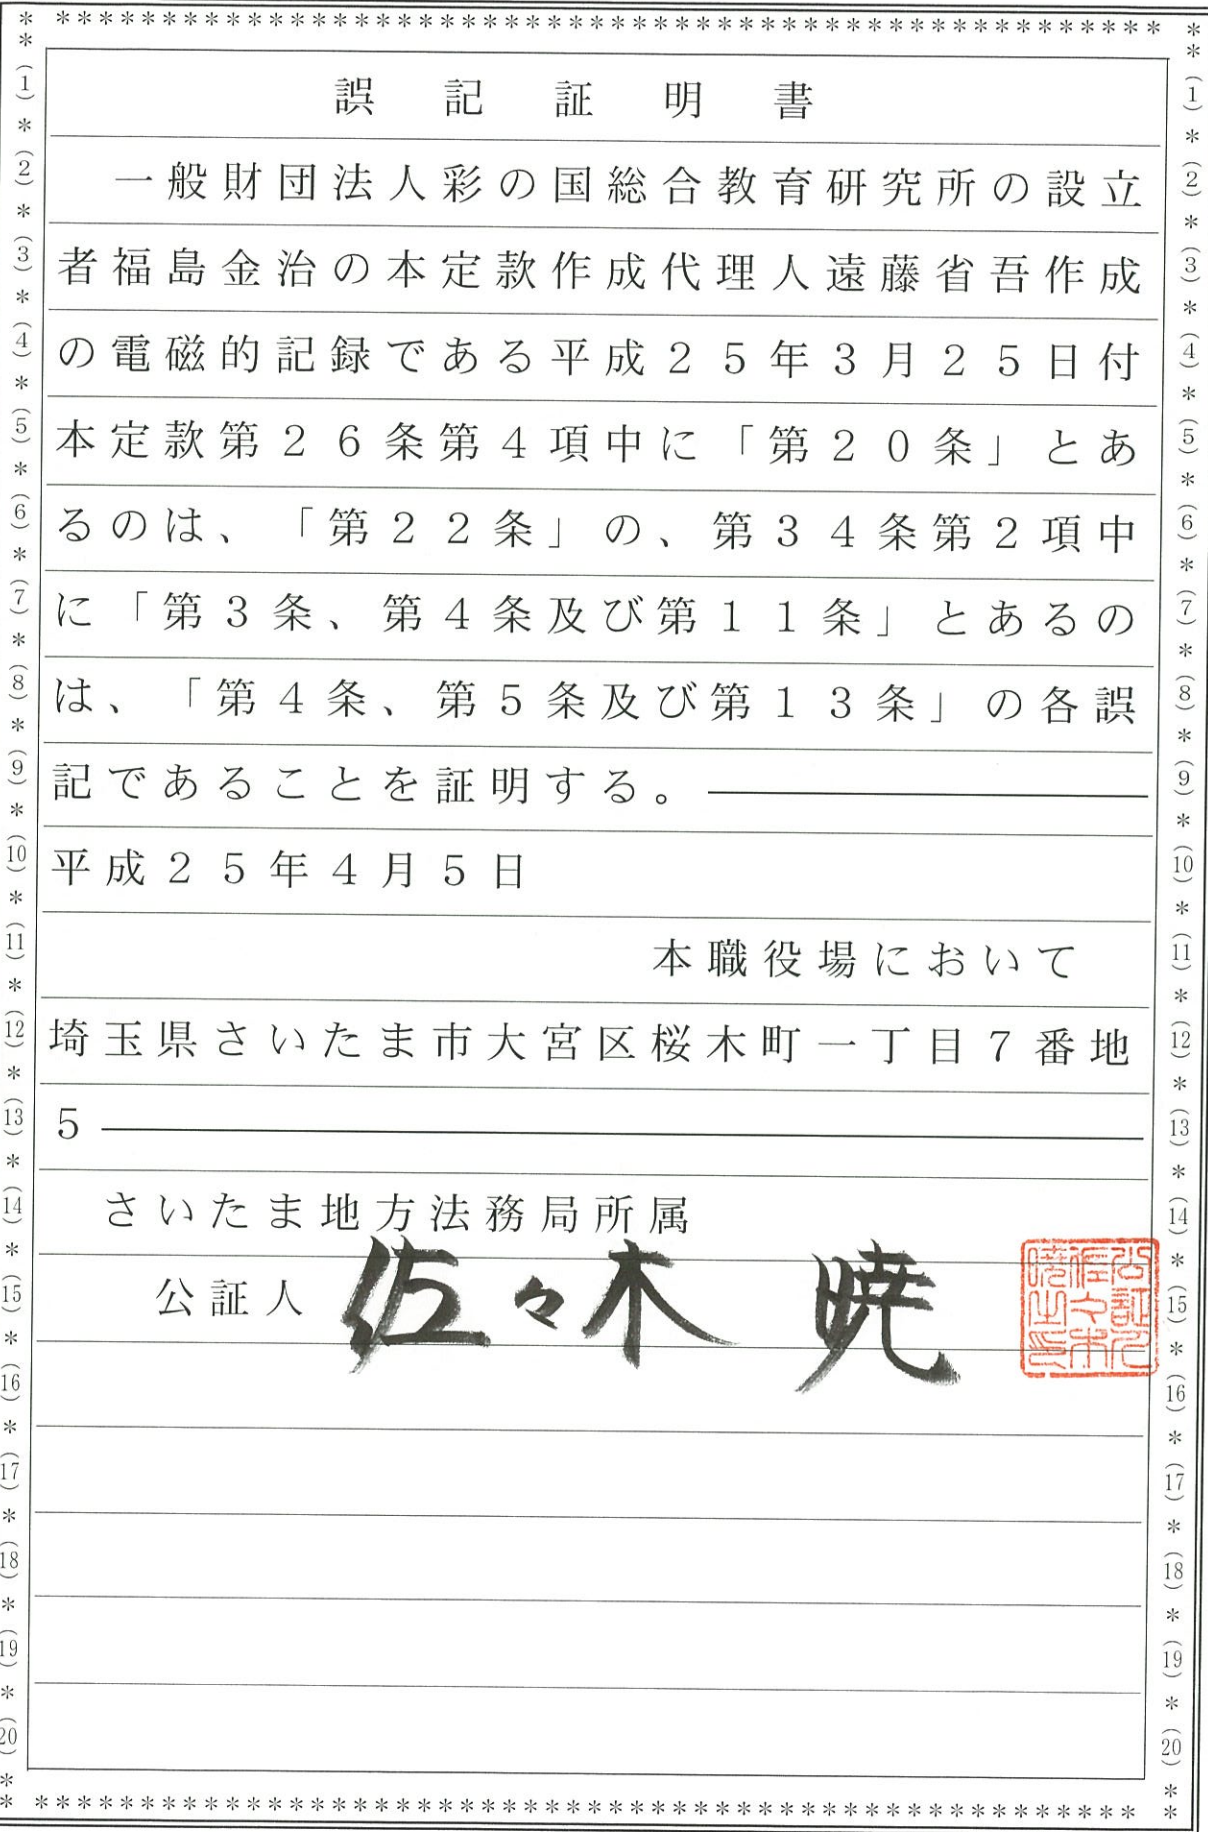 誤記証明書
一般財団法人彩の国総合教育研究所の設立
者福島金治の本定款作成代理人遠藤省吾作成
の電磁的記録である平成２５年３月２５日付
本定款第２６条第４項中に「第２０条」とあ
るのは、「第２２条」の、第３４条第２項中
に「第３条、第４条及び第１１条」とあるの
は、「第４条、第５条及び第１３条」の各誤
記であることを証明する。
平成２５年４月５日
本職役場において
埼玉県さいたま市大宮区桜木町一丁目７番地
５
さいたま地方法務局所属
公証人 佐々木 暁
公証人佐々木暁之印